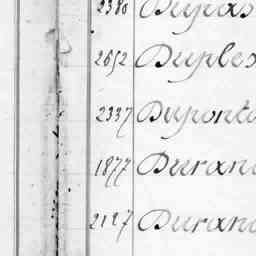 2380 Dupas
2652 Duplex
2337 Dupont
1877 Durand
2127 Durand